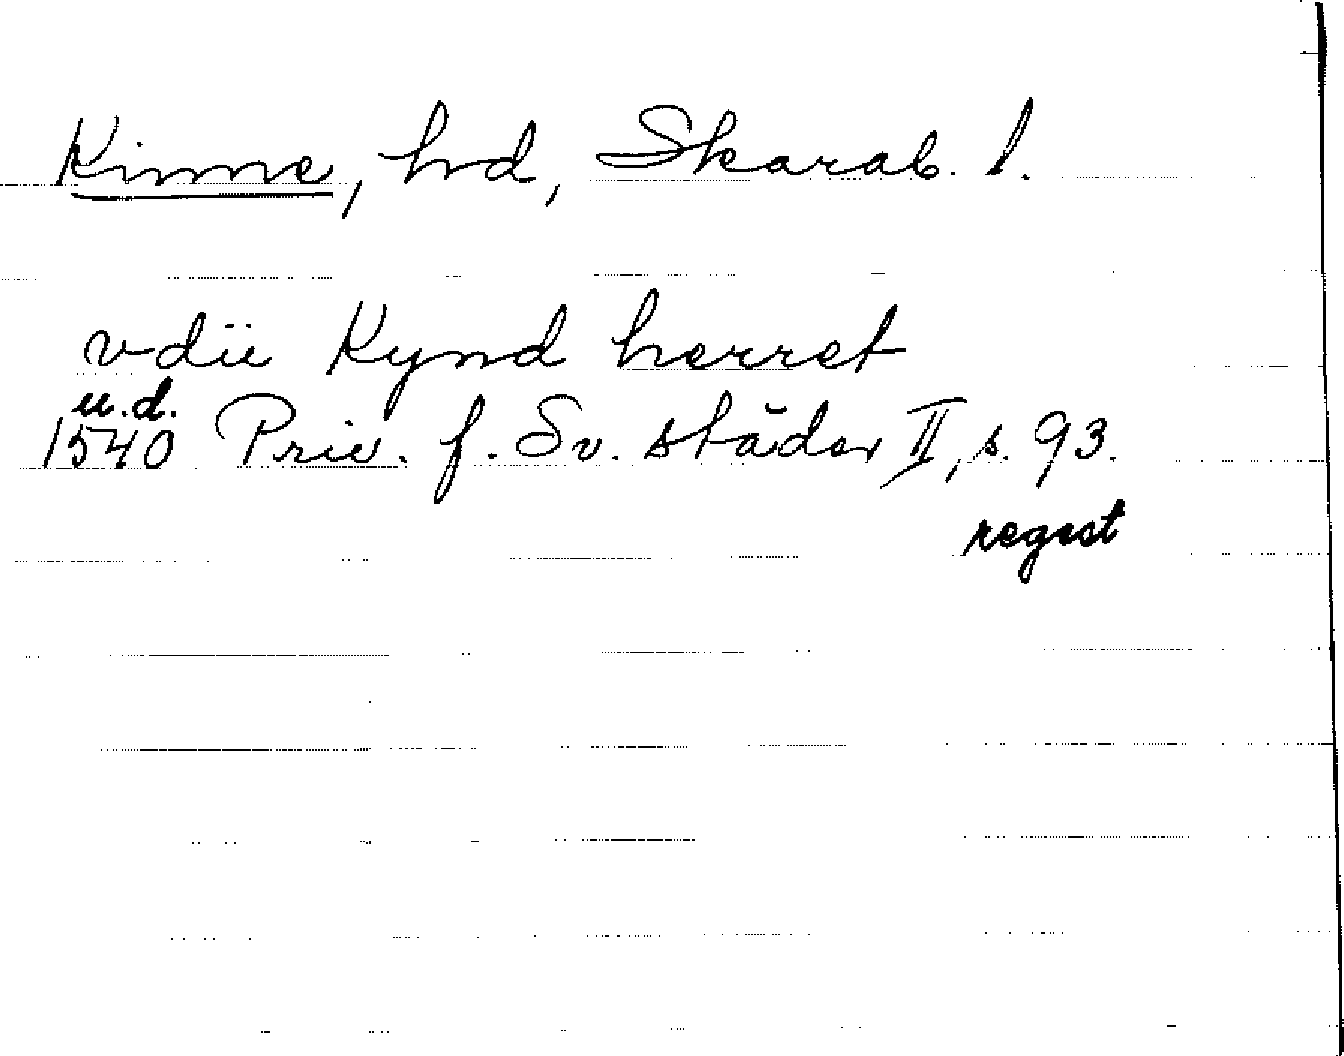 Kinne, hd, Skarab. l.
vdii Kynd herret
u.d.
1540 Priv. f. Sv. städer II, s. 93.
regest